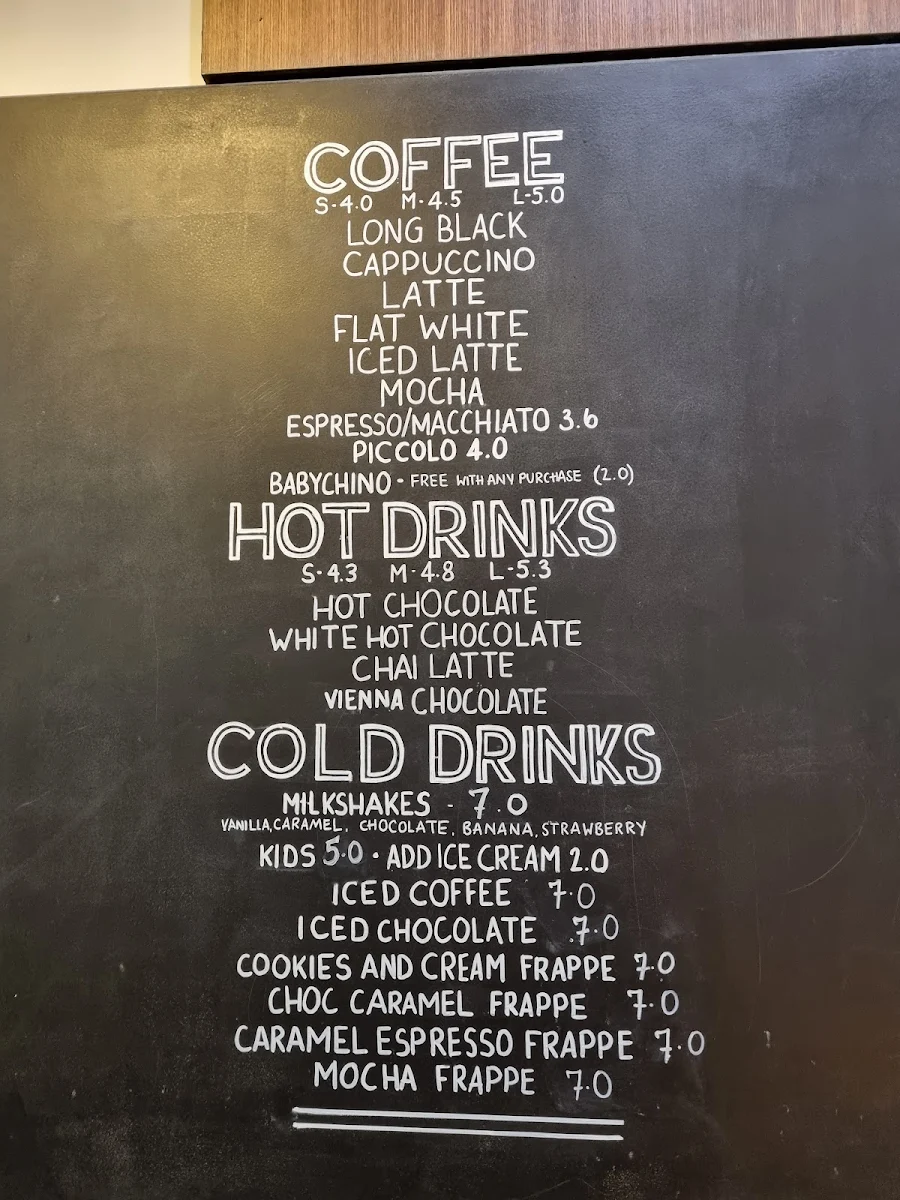 COFFEE
S-4.0 M-4.5 L-5.0
LONG BLACK
CAPPUCCINO
LATTE
FLAT WHITE
ICED LATTE
MOCHA
ESPRESSO/MACCHIATO 3.6
PICCOLO 4.0
BABYCHINO - FREE WITH ANY PURCHASE (2.0)
HOT DRINKS
S-4.3 M-4.8 L-5.3
HOT CHOCOLATE
WHITE HOT CHOCOLATE
CHAI LATTE
VIENNA CHOCOLATE
COLD DRINKS
MILKSHAKES - 7.0
VANILLA, CARAMEL, CHOCOLATE, BANANA, STRAWBERRY
KIDS 5.0 · ADD ICE CREAM 2.0
ICED COFFEE 7.0
ICED CHOCOLATE 7.0
COOKIES AND CREAM FRAPPE 7.0
CHOC CARAMEL FRAPPE 7.0
CARAMEL ESPRESSO FRAPPE 7.0
MOCHA FRAPPE 7.0